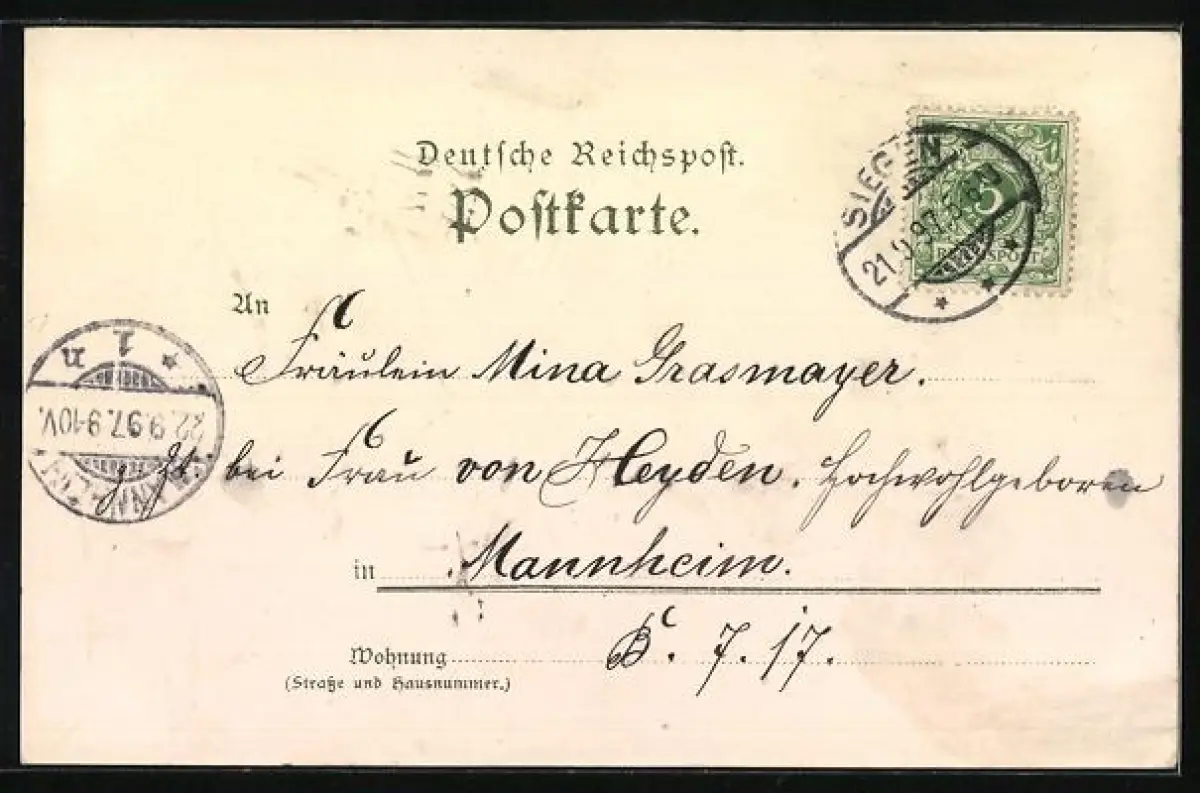 Deutsche Reichspost.
Postkarte.
SIEGEN
21.9.97.5-6N
5
REICHSPOST
An
Fräulein Mina Grasmayer.
1 n
22.9.97.9-10V.
z. Zt. bei Frau von Heyden, Hochwohlgeboren
in Mannheim.
B. 7. 17.
Wohnung
(Straße und Hausnummer.)